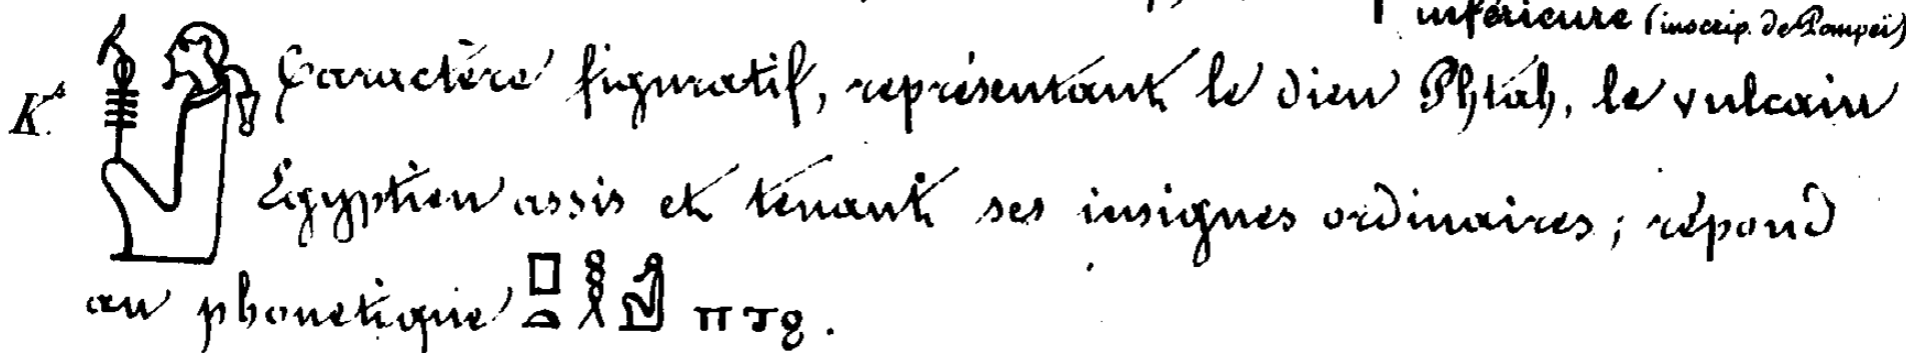 inférieure (inscrip. de Pompeï)
K. Caractère figuratif, représentant le dieu Phtah, le vulcain
Égyptien assis et tenant ses insignes ordinaires ; répond
au phonetique 𓊪𓏏𓎛𓁰 ⲡⲧϩ .